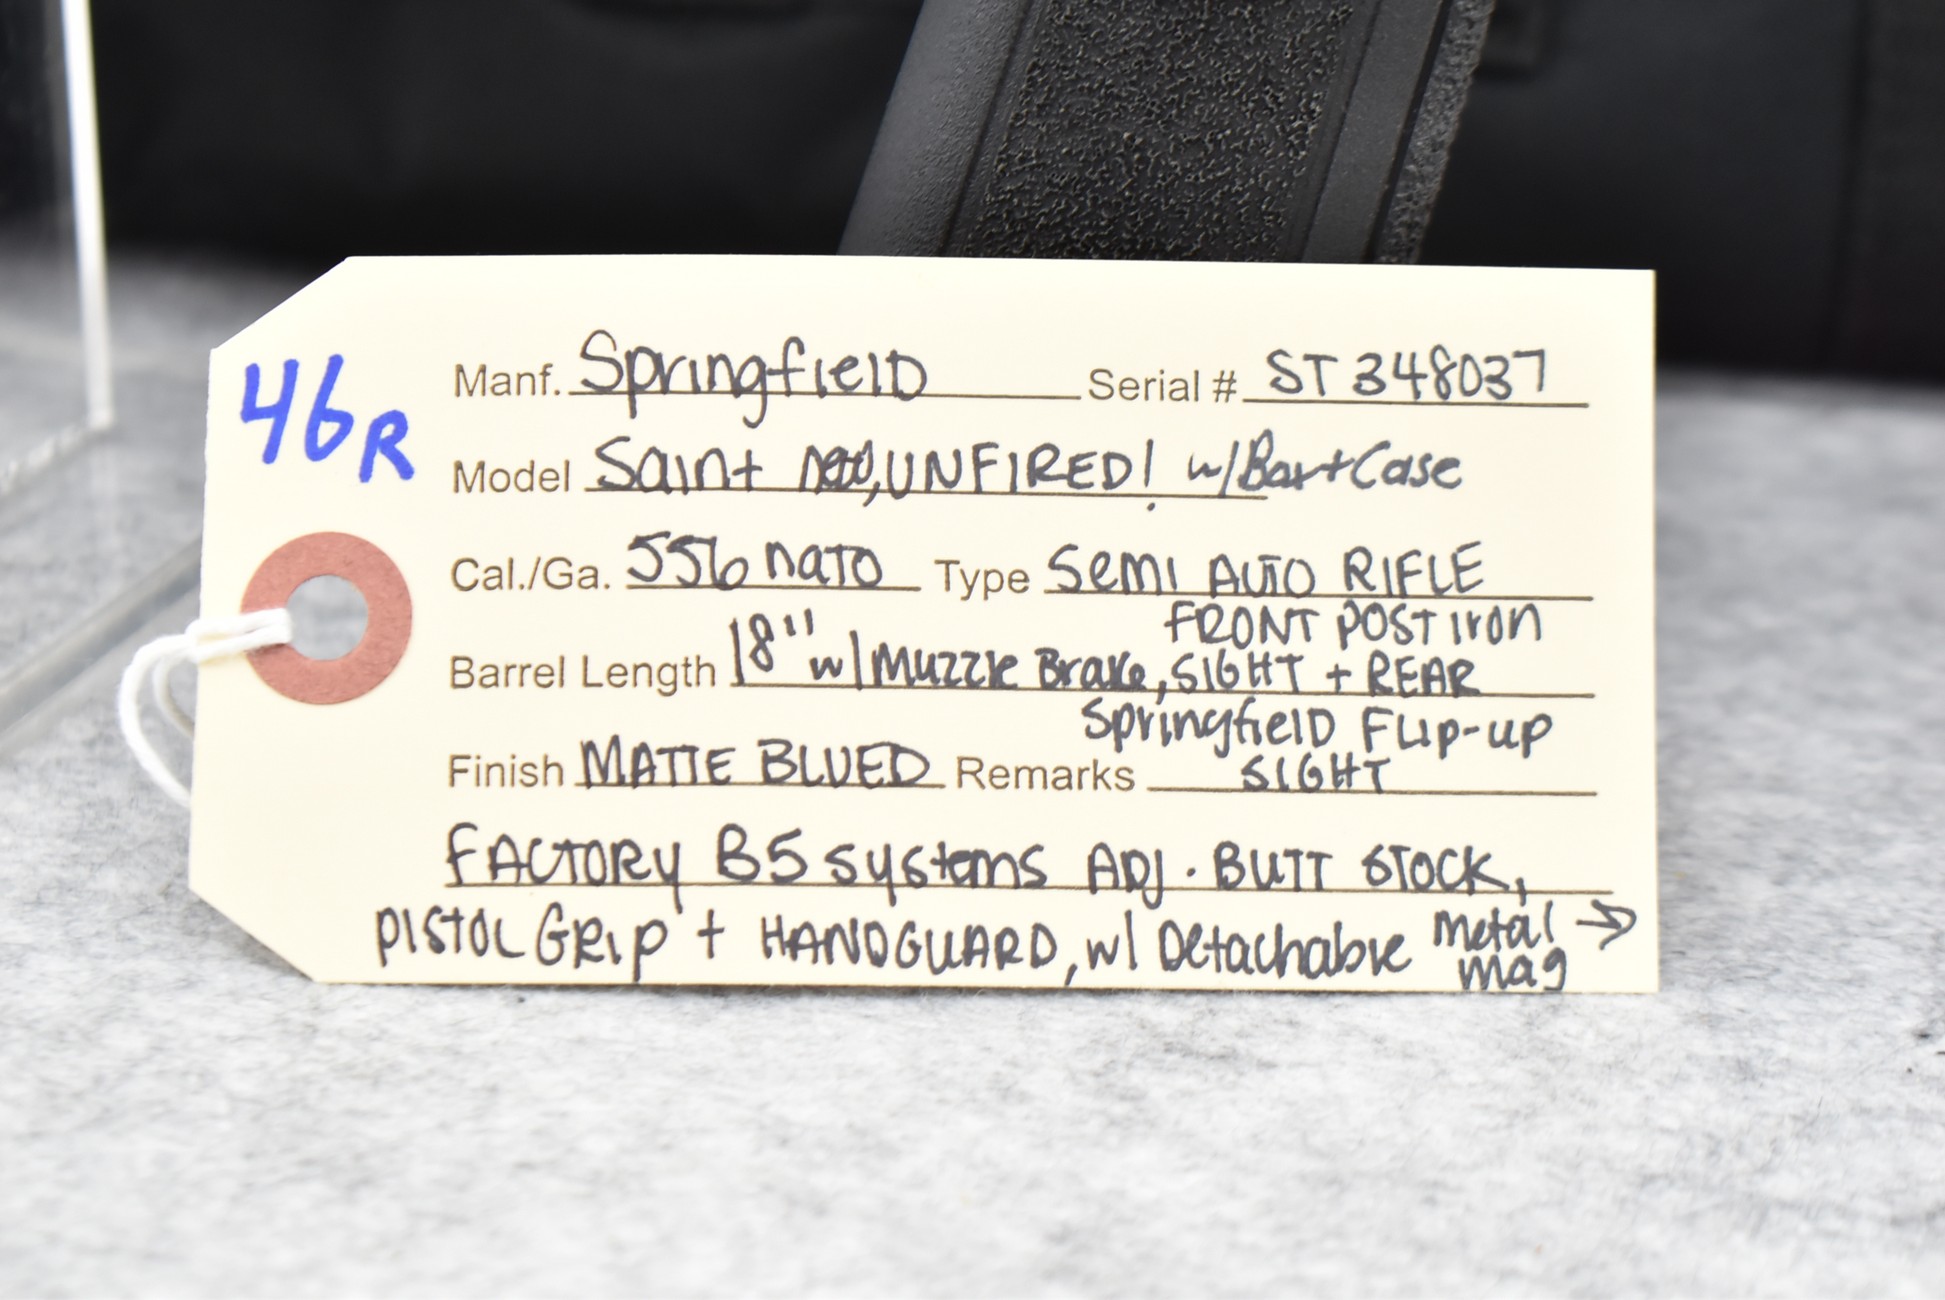 46R
Manf. Springfield Serial # ST348037
Model Saint new, UNFIRED! w/Box+Case
Cal./Ga. 556 nato Type Semi AUTO RIFLE
Barrel Length 18" w/Muzzle Brake, FRONT POST Iron
SIGHT + REAR
Springfield Flip-up
Finish MATTE BLUED Remarks SIGHT
FACTORY B5 systems ADJ. BUTT STOCK,
PISTOL GRIP + HANDGUARD, w/ Detachable Metal →
mag